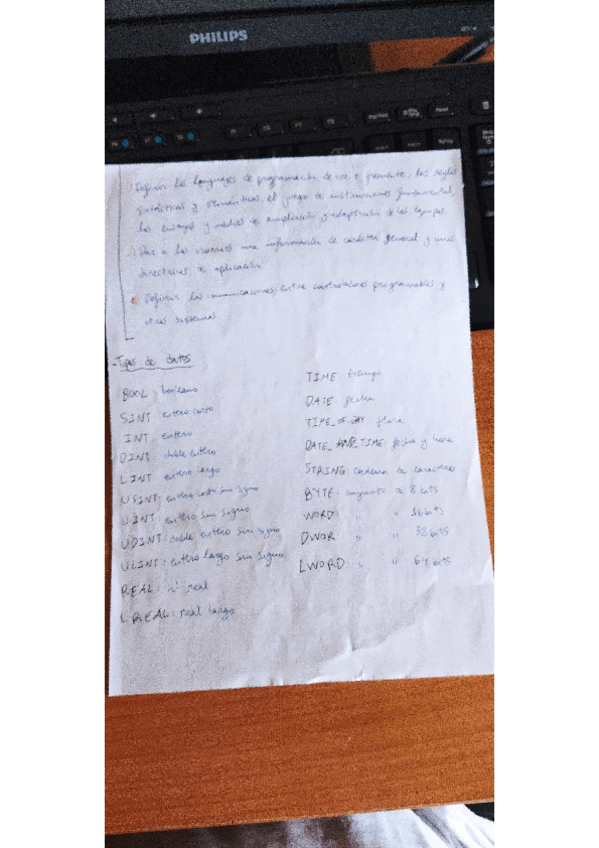 PHILIPS
Definir los lenguajes de programación de uso + frecuente, las reglas
sintácticas y semánticas, el juego de instrucciones fundamental,
los ensayos y medios de ampliación y adaptación de los equipos
Dar a los usuarios una información de carácter general y unas
directrices de aplicación
Definir las comunicaciones entre controladores programables y
otros sistemas
- Tipos de datos
BOOL: booleano
SINT: entero corto
INT: entero
DINT: doble entero
LINT: entero largo
USINT: entero corto sin signo
UINT: entero sin signo
UDINT: doble entero sin signo
ULINT: entero largo sin signo
REAL: nº real
LREAL: real largo
TIME: tiempo
DATE: fecha
TIME_OF_DAY: hora
DATE_AND_TIME: fecha y hora
STRING: cadena de caracteres
BYTE: conjunto de 8 bits
WORD: " " 16 bits
DWOR: " " 32 bits
LWORD: " " 64 bits